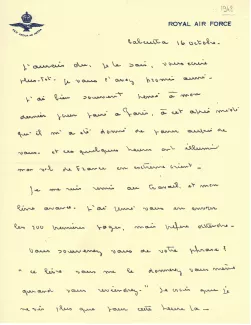 1942
ROYAL AIR FORCE
Calcutta 16 octobre.
J'aurais dû, je le sais, vous écrire
plus-tôt. Je vous l'avais promis aussi.
J'ai bien souvent pensé à mon
dernier jour passé à Paris, à cet après midi
qu'il m'a été donné de passer auprès de
vous. et ces quelques heures ont illuminé
mon vol de France en extrême orient.
Je me suis remis au travail et mon
livre avance. J'ai pensé vous en envoyer
les 100 premières pages, mais préfère attendre.
Vous souvenez vous de votre phrase ?
" ce livre vous me le donnerez vous même
quand vous reviendrez." Je crois que je
ne vis plus que pour cette heure là -